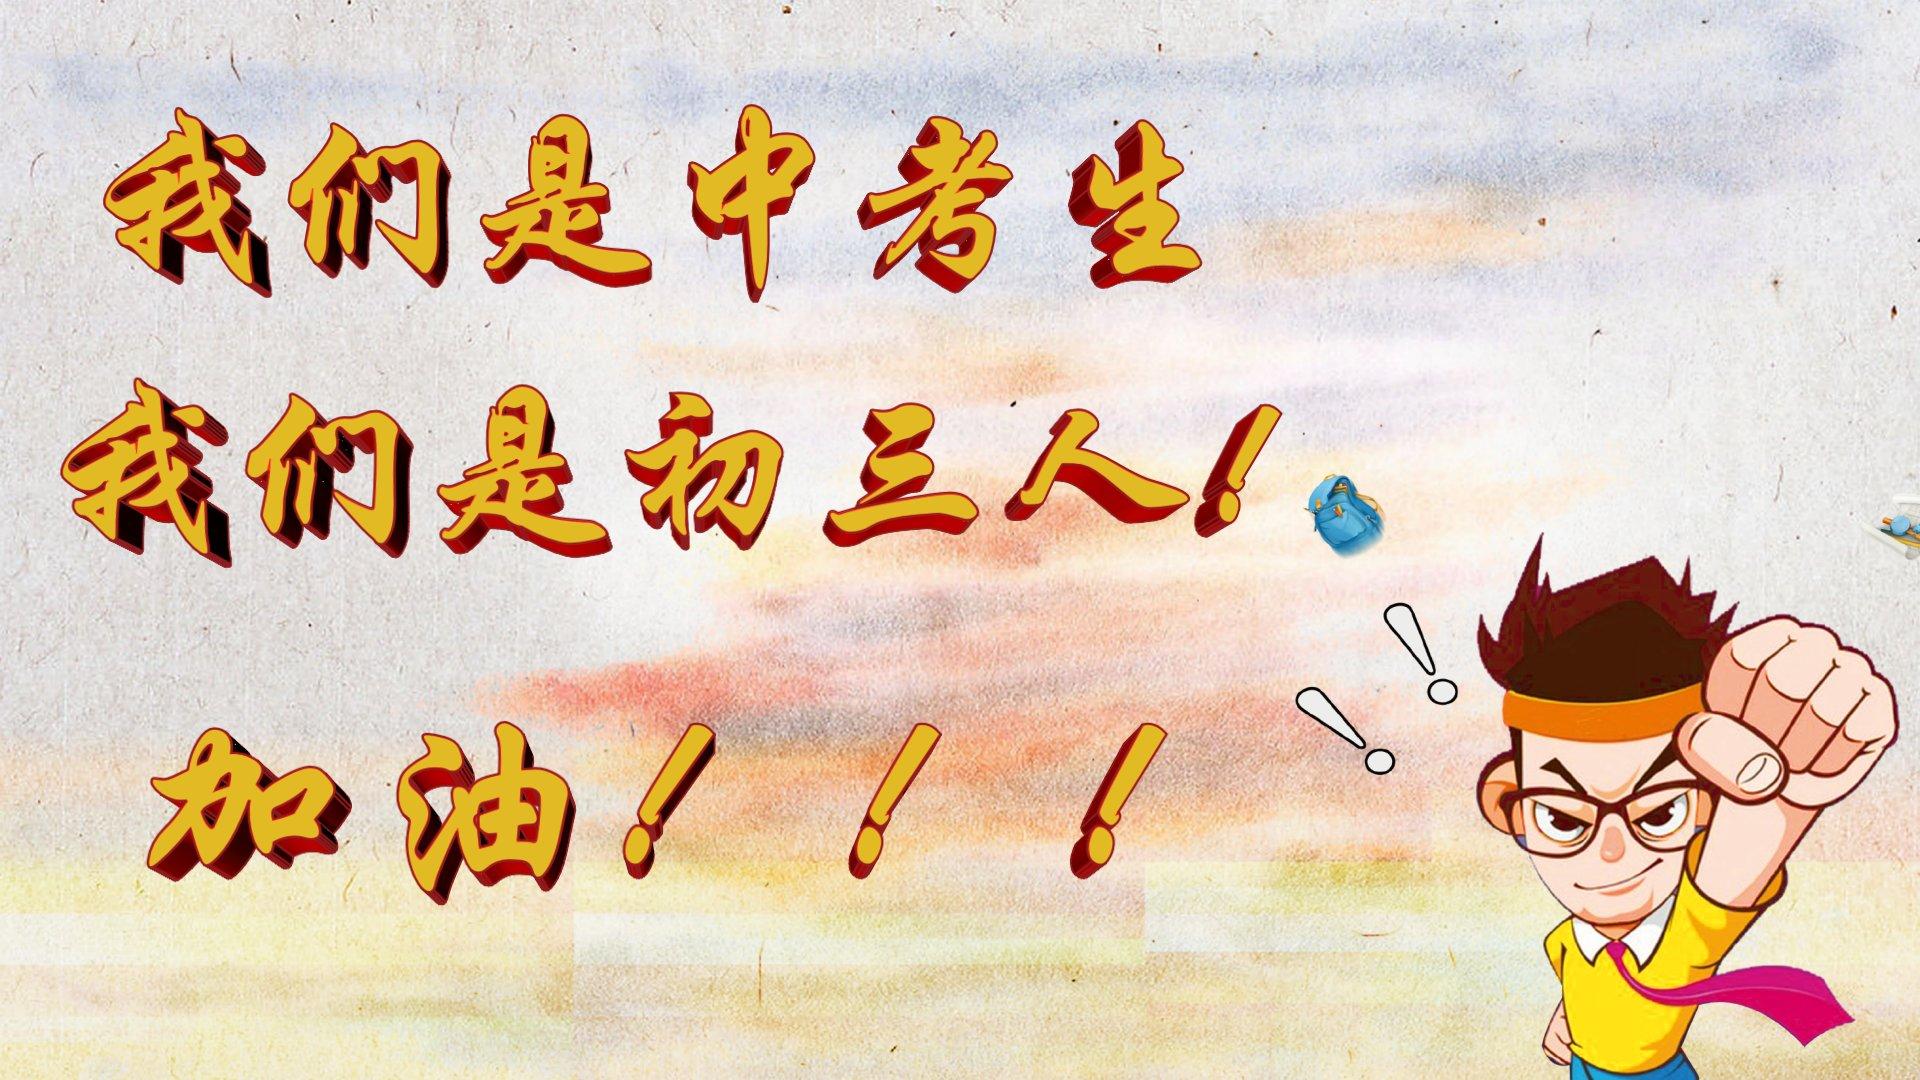 我们是中考生
我们是初三人!
加油!!!